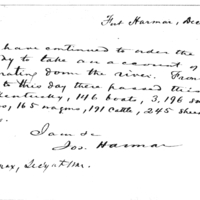 Fort Harmar, Dec
have continued to order the
dy to take an account of
rating down the river. From
to this day there passed this
Kentucky, 146 boats, 3,196 so
165 wagons, 191 cattle, 245 shee
I am &c
Jos. Harmar
nox, Secy at War.